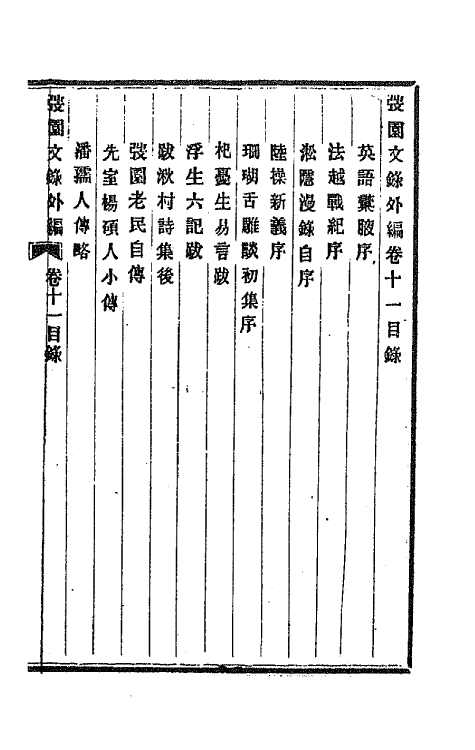 弢園文錄外編卷十一目錄
英語彙腋序
法越戰紀序
淞隱漫錄自序
陸操新義序
珊瑚舌雕談初集序
杞憂生易言跋
浮生六記跋
跋湫村詩集後
弢園老民自傳
先室楊碩人小傳
潘孺人傳略
弢園文錄外編 卷十一目錄